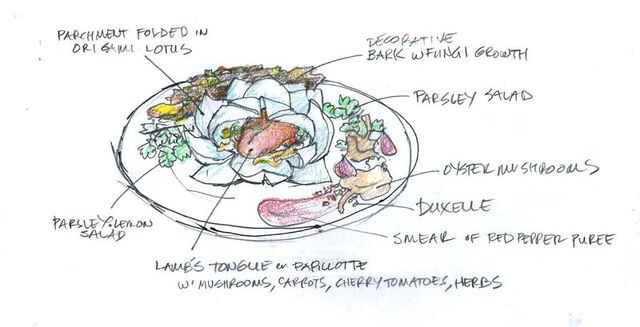 PARCHMENT FOLDED IN
ORIGAMI LOTUS
DECORATIVE
BARK W FUNGI GROWTH
PARSLEY SALAD
OYSTER MUSHROOMS
DUXELLE
SMEAR OF RED PEPPER PUREE
PARSLEY-LEMON
SALAD
LAMB'S TONGUE en PAPILLOTTE
W/ MUSHROOMS, CARROTS, CHERRY TOMATOES, HERBS